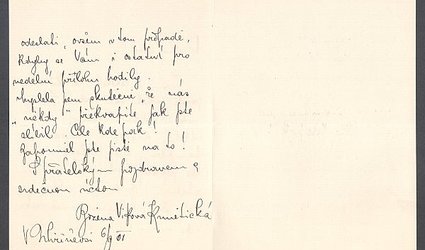 odeslati, ovšem v tom případě,
kdyby se Vám i ostatní pro
nedělní přílohu hodily.
myslela jsem skutečně, že nás
"někdy" překvapíte jak jste
slíbil. Ale kde pak!
Zapomněl jste jistě na to!
S přátelským pozdravem a
srdečnou úctou
Božena Viková Kunětická
V 6/9 01